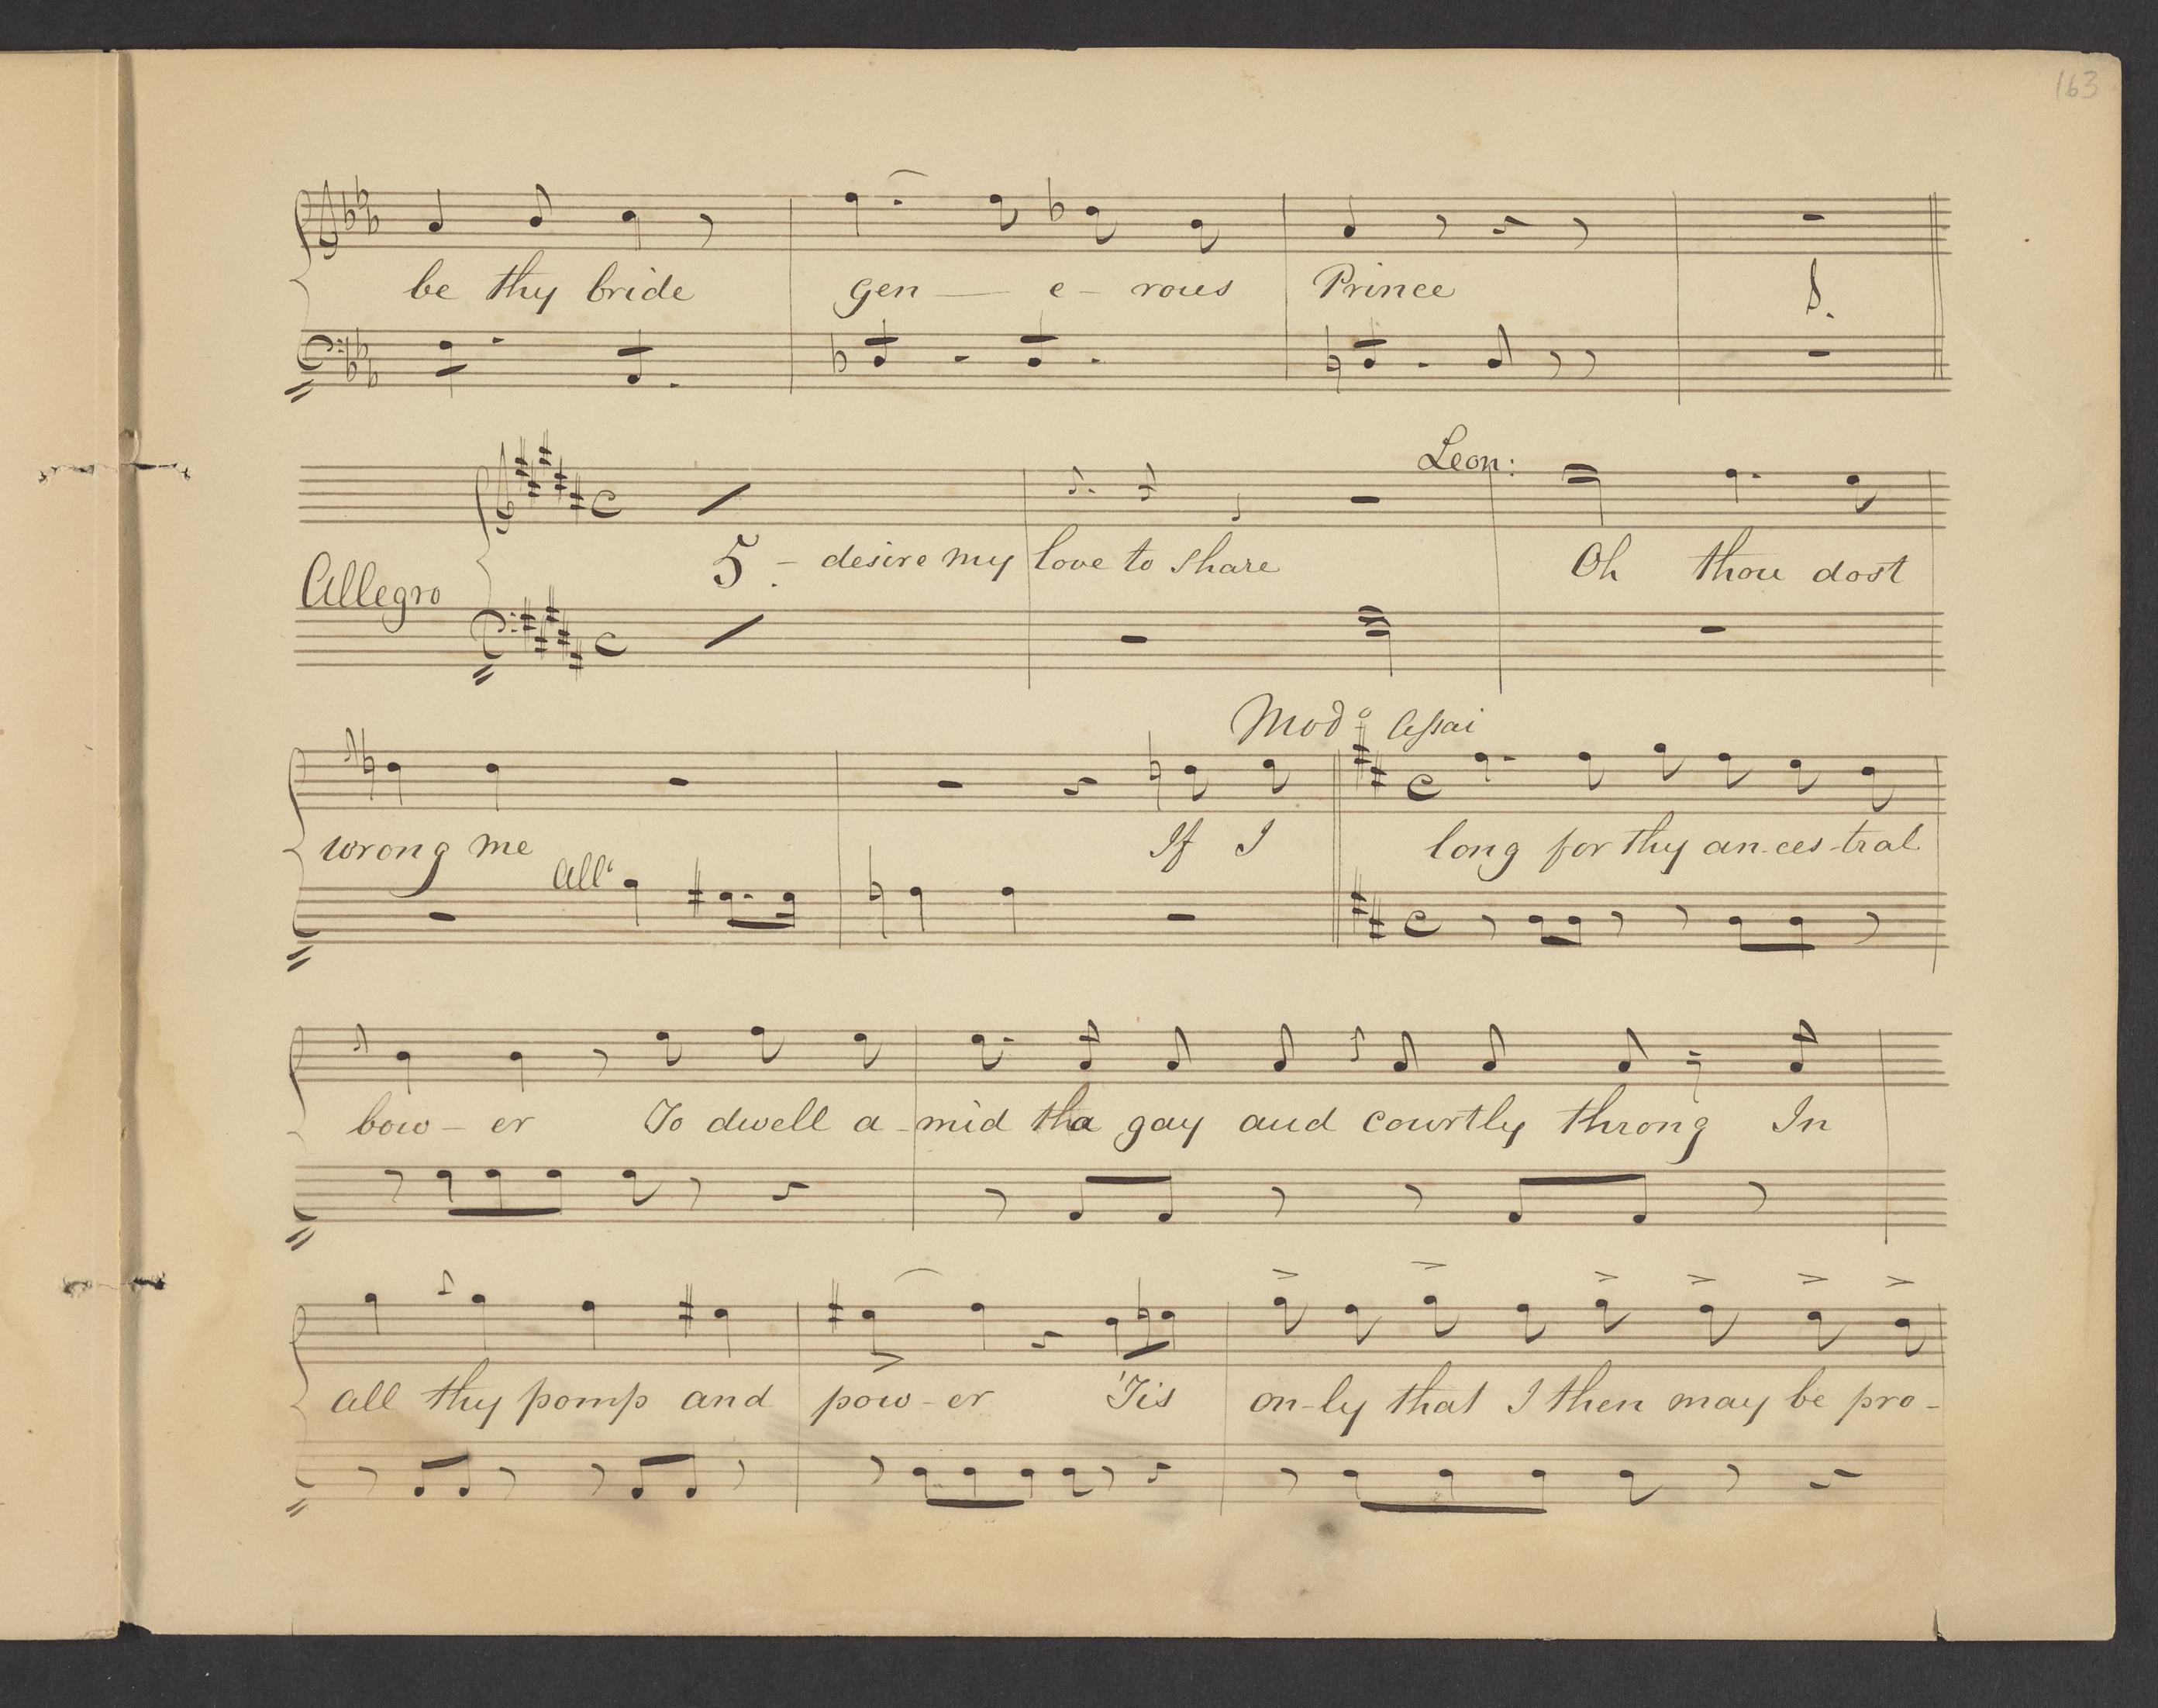 163
be thy bride gen — e – rous Prince
Leon:
Allegro 5 – desire my love to share Oh thou dost
Modº Assai
wrong me If I long for thy an-ces-tral
All°
bow – er To dwell a – mid tha gay and courtly throng In
all thy pomp and pow – er 'Tis on-ly that I then may be pro –